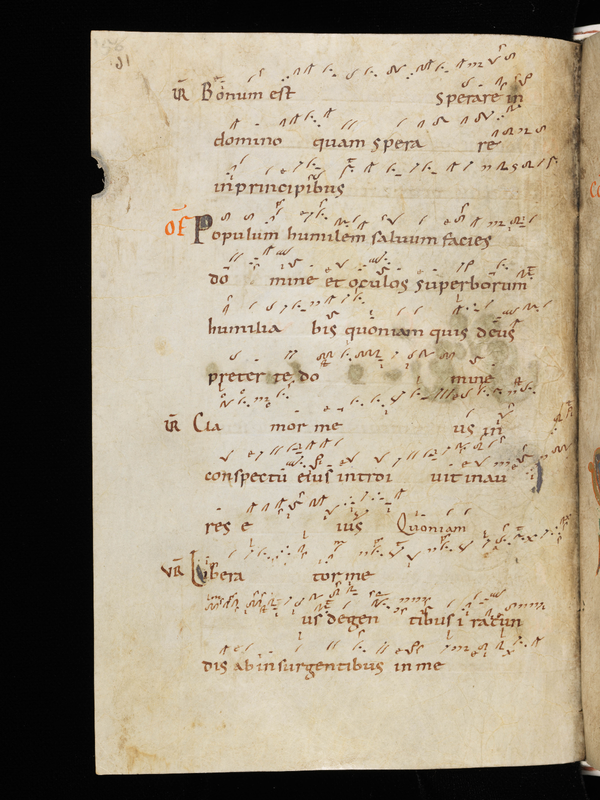 VR Bonum est sperare in
domino quam spera re
in principibus
OF Populum humilem saluum facies
do mine et oculos superborum
humilia bis quoniam quis deus
preter te do mine
VR Cla mor me us in
conspectu eius introi uit in au
res e ius Quoniam
VR Libera tor me
us de gen tibus i racun
dis ab insurgentibus in me